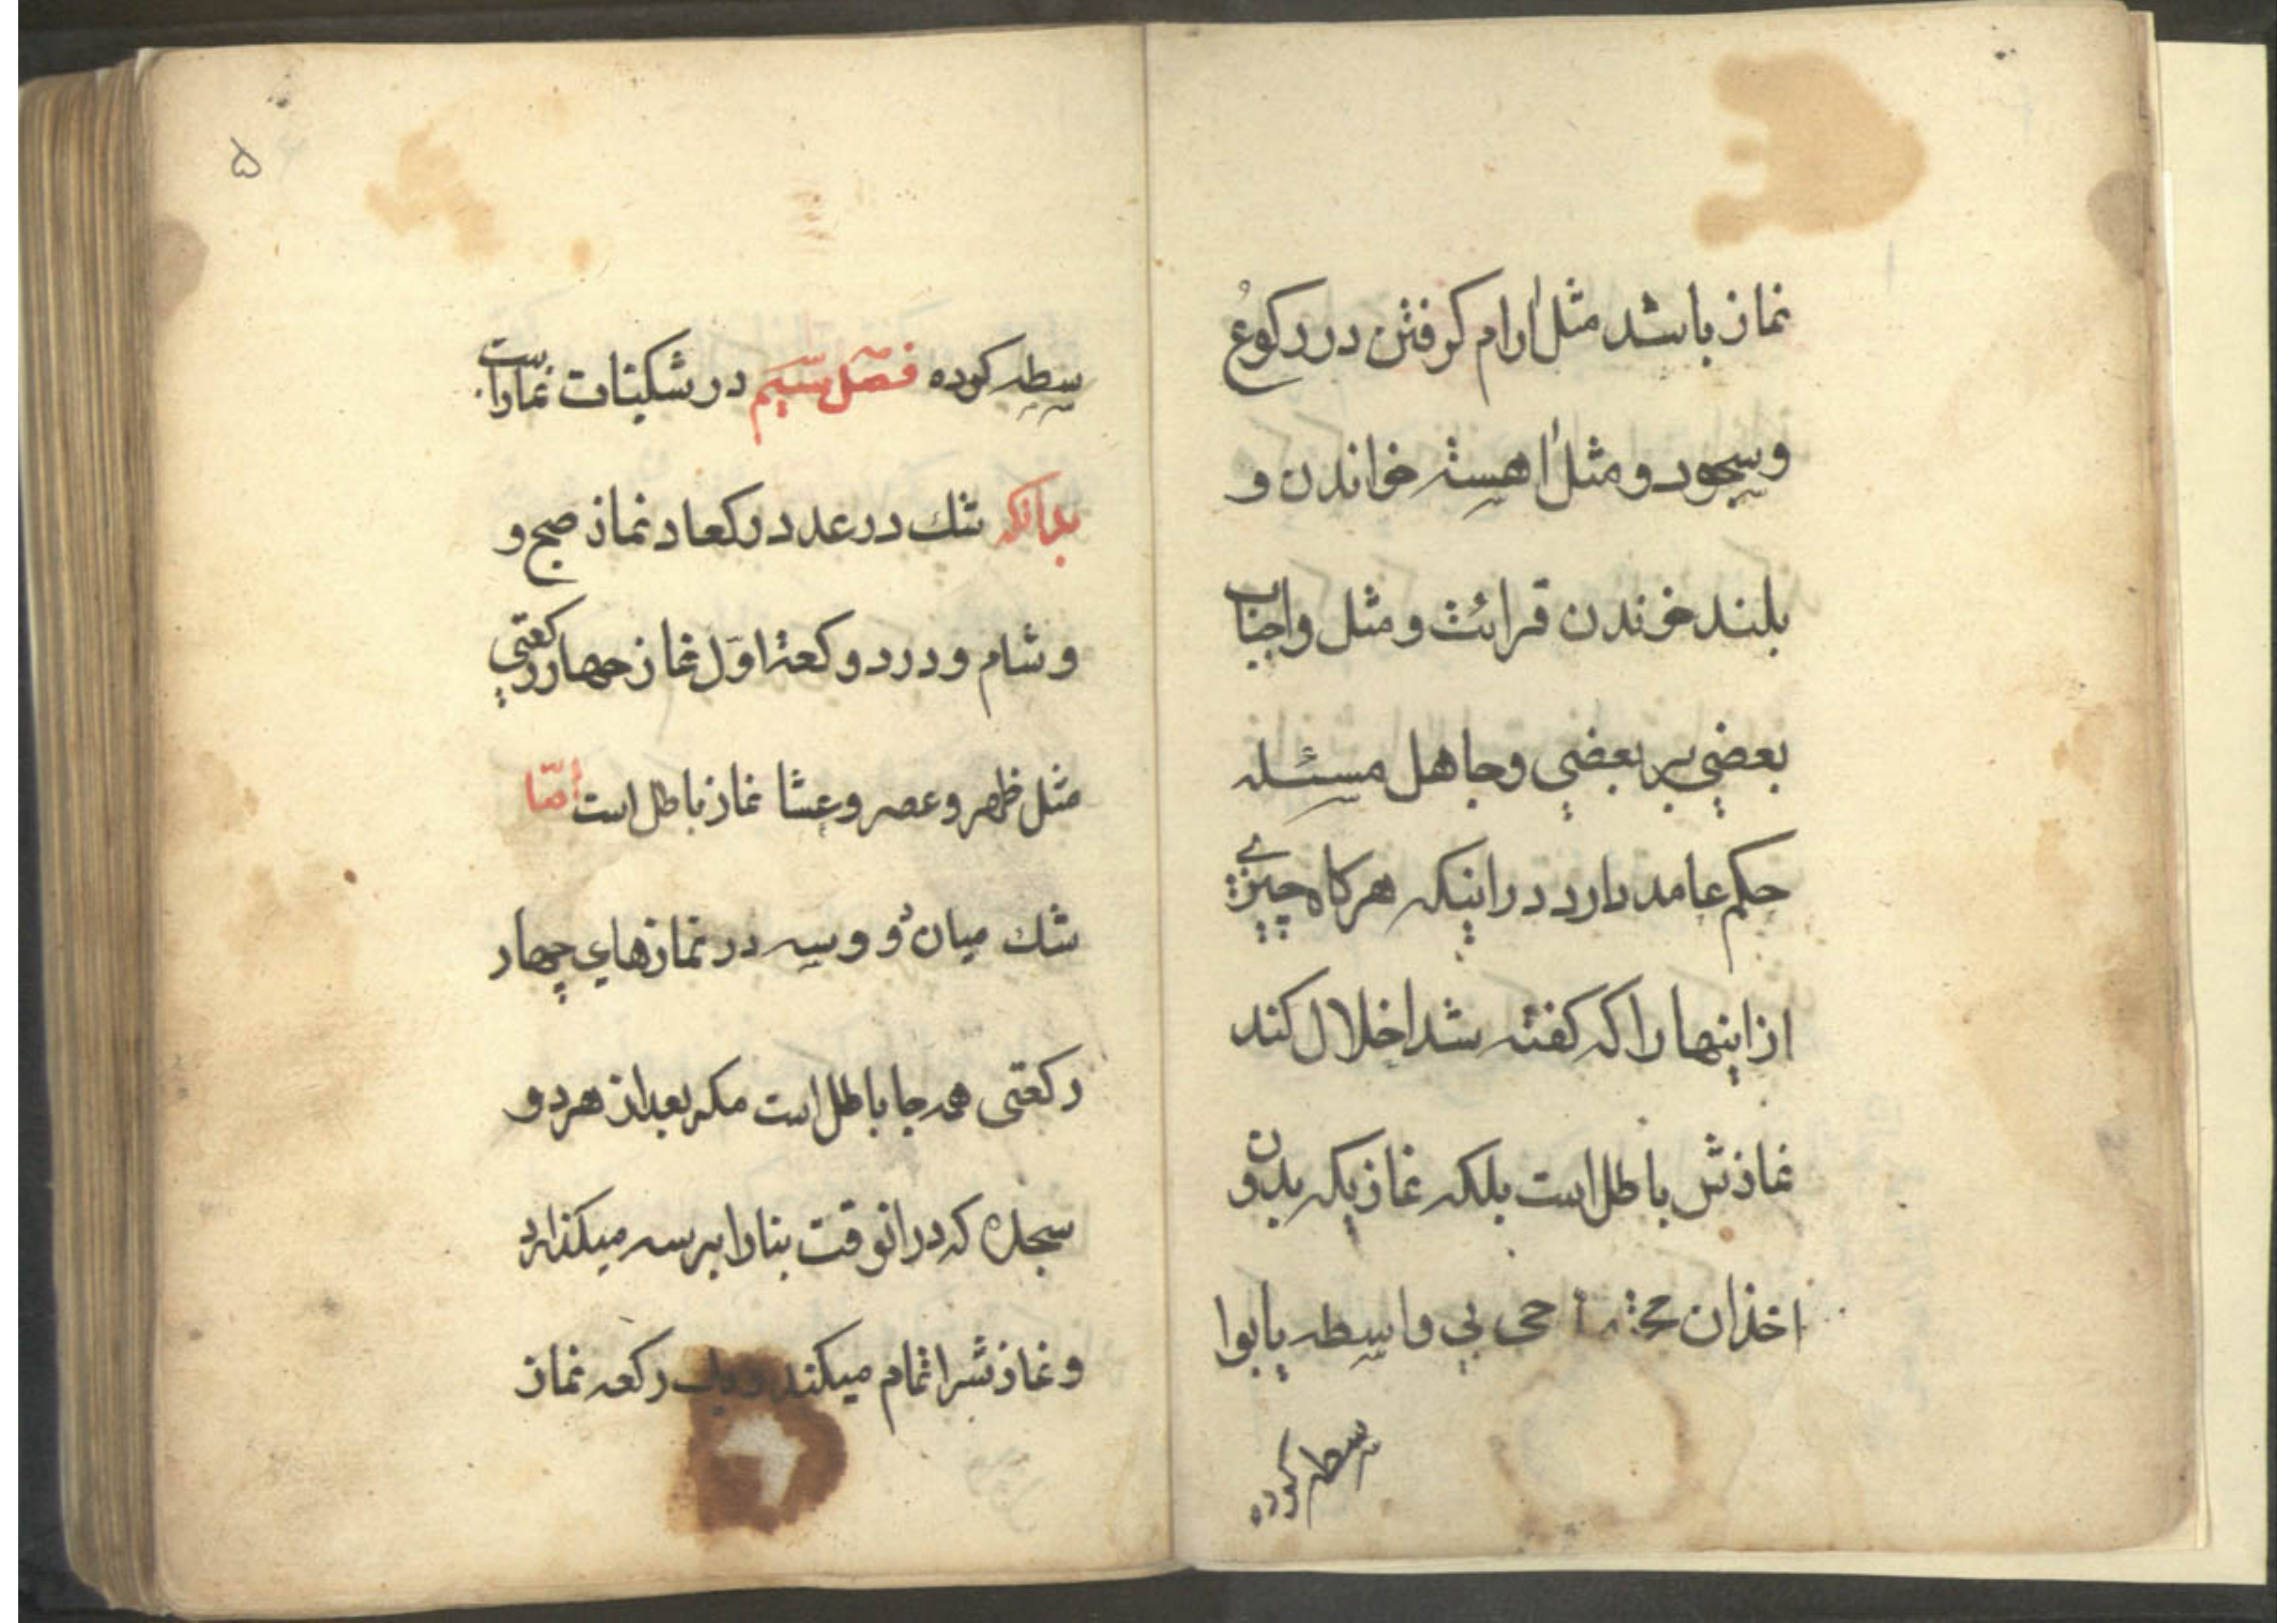 نماز باشد مثل ارام کرفتن در رکوع
و سجود و مثل اهسته خواندن و
بلند خوندن قرائت و مثل واجبات
بعضي بر بعضي و جاهل مسئله
حکم عامد دارد در اینکه هرکاه چیزي
از اینها را که کفته شد اخلال کند
نمازش باطل است بلکه نمازیکه بدون
اخذ ان حي بي واسطه یا بوا
سطه کرده
۵
سطه کوده فصل سیم در شکیات نماز است
بدانکه شك در عدد رکعاد نماز صبح و
و شام و در دو رکعة اوّل نماز چهار رکعتي
مثل ظهر و عصر و عشا نماز باطل است امّا
شك میان دو و سه در نمازهاي چهار
رکعتی همه جا باطل است مکر بعد از هر دو
سجده که در انوقت بنا را بر سه میکذارد
و نمازش را تمام میکند و یك رکعه نماز